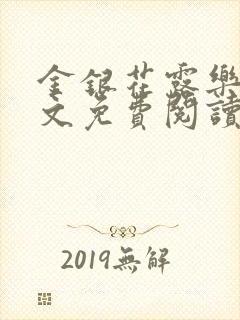 金銀花露樂
文免費閱讀
2019無解